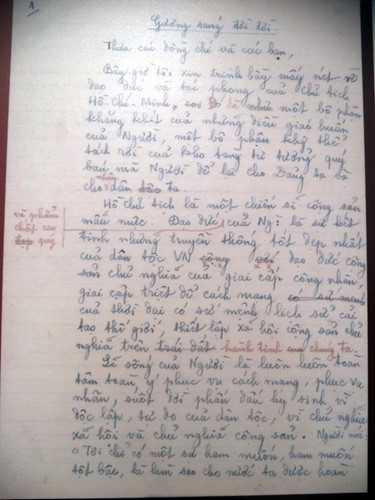 1
Gương sáng đời đời
Thưa các đồng chí và các bạn,
Bây giờ tôi xin trình bày mấy nét về
đạo đức và tác phong của Chủ tịch
Hồ Chí Minh, coi đó là như một bộ phận
khăng khít của những điều giáo huấn
của Người, một bộ phận không thể
tách rời của kho tàng tư tưởng quý
báu mà Người để lại cho Đảng ta và
cho dân ta.
Hồ chủ tịch là một chiến sĩ cộng sản
mẫu mực. Đạo đức của Ng: là sự kết
về phẩm
chất cao
quý
tinh những truyền thống tốt đẹp nhất
của dân tộc VN với đạo đức cộng
sản chủ nghĩa của giai cấp công nhân,
giai cấp triệt để cách mạng có sứ mệnh
của thời đại có sứ mệnh lịch sử cải
tạo thế giới, thiết lập xã hội cộng sản chủ
nghĩa trên trái đất hành tinh của chúng ta.
Lẽ sống của Người là luôn luôn toàn
tâm toàn ý phục vụ cách mạng, phục vụ
nhân, suốt đời phấn đấu hy sinh vì
độc lập, tự do của dân tộc, vì chủ nghĩa
xã hội và chủ nghĩa cộng sản. Người nói:
"Tôi chỉ có một sự ham muốn, ham muốn
tột bậc, là làm sao cho nước ta được hoàn